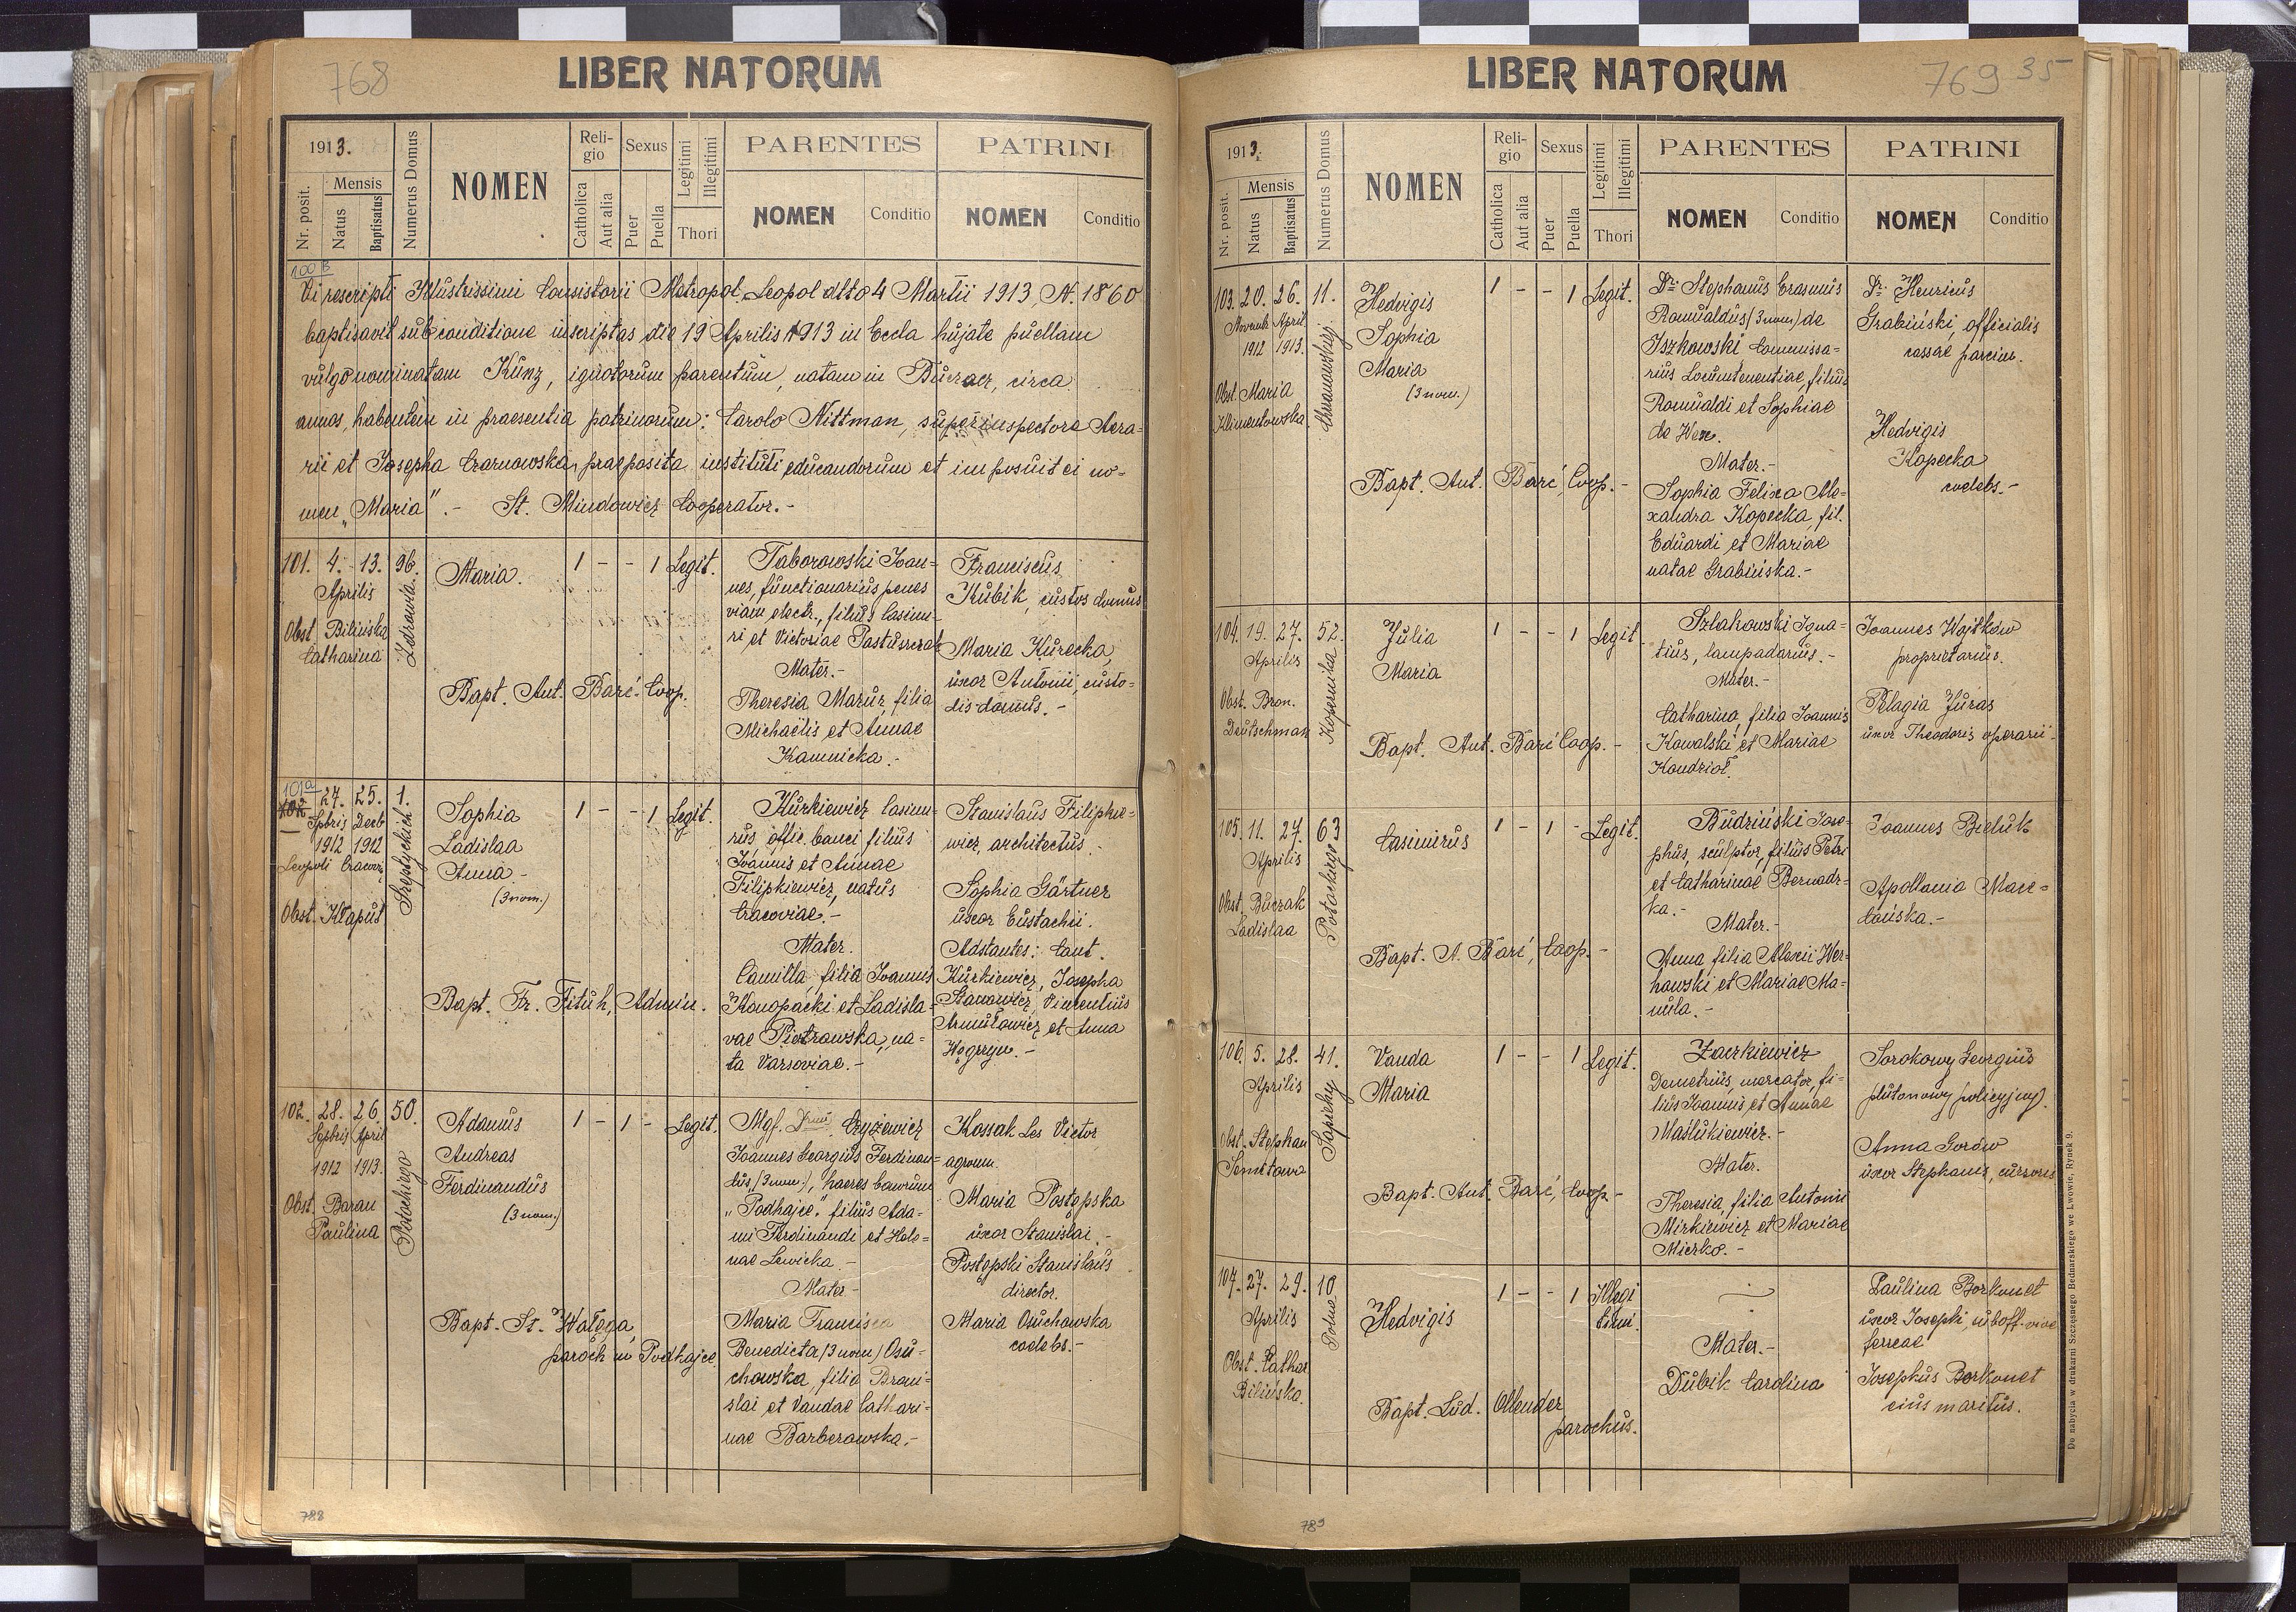 768
LIBER NATORUM
1913.
Nr. posit.
Mensis
Natus
Baptisatus
Numerus Domus
NOMEN
Religio
Catholica
Aut alia
Sexus
Puer
Puella
Legitimi
Illegitimi
Thori
PARENTES
NOMEN
Conditio
PATRINI
NOMEN
Conditio
100 B
Vi rescripti Illustrissimi Consistorii Metropol. Leopol dtto 4 Martii 1913, N. 1860
baptisavit sub conditione inscriptas die 19 Aprilis 1913 in Eccla hujate puellam
vulgo nominatam Kunz, ignotorum parentum, natam in Buczacz, circa
annos, habentem in praesentia patrinorum: Carolo Nittman, superinspectore Aera-
rii et Josepha Czarnowska, praeposita instituti educandorum et imposuit ei no-
men "Maria". - St. Mindowicz Cooperator. -
101. 4. 13. 96.
Aprilis
Obst. Bilińska
Catharina
Zdrowia.
Maria.
1 - - 1 Legit.
Bapt. Ant. Barć Coop.
Taborowski Joan-
nes, functionarius penes
viam electr., filius Casimi-
ri et Victoriae Pastuszczak
Mater. -
Theresia Mazur, filia
Michaëlis et Annae
Kamnicka. -
Franciscus
Kubik, custos domus
Maria Kurecka,
uxor Antonii, custo-
dis domus. -
101a
102
27. 25. 1.
Spbris Decb
1912 1912
Leopoli Cracov.
Obst. Kłaput
Szeptyckich.
Sophia
Ladislaa
Anna -
(3 nom.)
1 - - 1 Legit.
Bapt. Fr. Fituh, Admin.
Kurkiewicz Casimi-
rus offic. banci filius
Joannis et Annae
Filipkiewicz, natus
Cracoviae. -
Mater.
Camilla, filia Joannis
Konopacki et Ladisla-
vae Piotrowska, na-
ta Varsoviae. -
Stanislaus Filipkie-
wicz, architectus. -
Sophia Gärtner
uxor Eustachii.
Adstantes: Cant.
Kurkiewicz, Josepha
Stanowicz, Vincentius
Armułowicz et Anna
Węgrzyn. -
102. 28. 26. 50.
Septbris April
1912 1913.
Obst. Baran
Paulina
Potockiego
Adamus
Andreas
Ferdinandus
(3 nom.)
1 - 1 - Legit.
Bapt. St. Wałęga,
paroch in Podhajce
Mgf. Dnus. Czyżewicz
Joannes Georgius Ferdinan-
dus, (3 nom.), haeres bonorum
"Podhajce" filius Ada-
mi Ferdinandi et Hele-
nae Lewicka. -
Mater -
Maria Francisca
Benedicta (3 nom) Osu-
chowska, filia Broni-
slai et Vandae Cathari-
nae Barberowska. -
Kossak Les Victor
agronom.
Maria Postępska
uxor Stanislai. -
Postępski Stanislaus
director.
Maria Osuchowska
coelebs. -
788
769 35
LIBER NATORUM
1913.
Nr. posit.
Mensis
Natus
Baptisatus
Numerus Domus
NOMEN
Religio
Catholica
Aut alia
Sexus
Puer
Puella
Legitimi
Illegitimi
Thori
PARENTES
NOMEN
Conditio
PATRINI
NOMEN
Conditio
103. 20. 26. 11.
Novemb April.
1912 1913.
Obst. Maria
Klimentowska
Hedvigis
Sophia
Maria
(3 nom.)
1 - - 1 Legit.
Bapt. Ant. Barć, Coop. -
Dr. Stephanus Erasmus
Romualdus (3 nom) de
Iszkowski Commissa-
rius Locumtenentiae, filius
Romualdi et Sophiae
de Hen.
Mater. -
Sophia Felixa Ale-
xandra Kopecka, fil.
Eduardi et Mariae
natae Grabińska. -
Dr. Henricus
Grabiński, officialis
cassae parcim.
Hedvigis
Kopecka
coelebs. -
104. 19. 27. 52.
Aprilis
Obst. Bron.
Deutschman
Kopernika
Julia
Maria
1 - - 1 Legit
Bapt. Ant. Barć Coop. -
Szlakowski Igna-
tius, lampadarius. -
Mater. -
Catharina, filia Joannis
Kowalski et Mariae
Kondzioł.
Joannes Wojtków
proprietarius.
Pelagia Juras
uxor Theodoris operarii.
105. 11. 27. 63
Aprilis
Obst. Buczak
Ladislaa
Potockiego
Casimirus
1 - 1 - Legit.
Bapt. A. Barć, Coop. -
Budziński Jose-
phus, sculptor, filius Petri
et Catharinae Bernadz-
ka. -
Mater. -
Anna filia Alexii Wer-
howski et Mariae Ma-
nula. -
Joannes Bieluk
Apollonia Mań-
kowska. -
106. 5. 28. 41.
Aprilis
Obst. Stephan
Semotowa
Sapiehy
Vanda
Maria
1 - - 1 Legit.
Bapt. Ant. Barć, Coop -
Zaczkiewicz
Demetrius, mercator, fi-
lius Joannis et Annae
Maślukiewicz. -
Mater.
Theresia, filia Antonii
Mirkiewicz et Mariae
Miezko. -
Sorokowy Georgius
plutonowy policyjny.
Anna Gorów
uxor Stephani, cursoris
107. 27. 29. 10
Aprilis
Obst. Cathar
Bilińska.
Polna
Hedvigis
1 - - 1 Illegi
timi.
Bapt. Lud. Ollender
parochus.
Mater. -
Dubik Carolina
Paulina Borkonet
uxor Josephi,uboff. viae
ferreae
Josephus Borkonet
eius maritus.
789
Do nabycia w drukarni Szczęsnego Bednarskiego we Lwowie, Rynek 9.